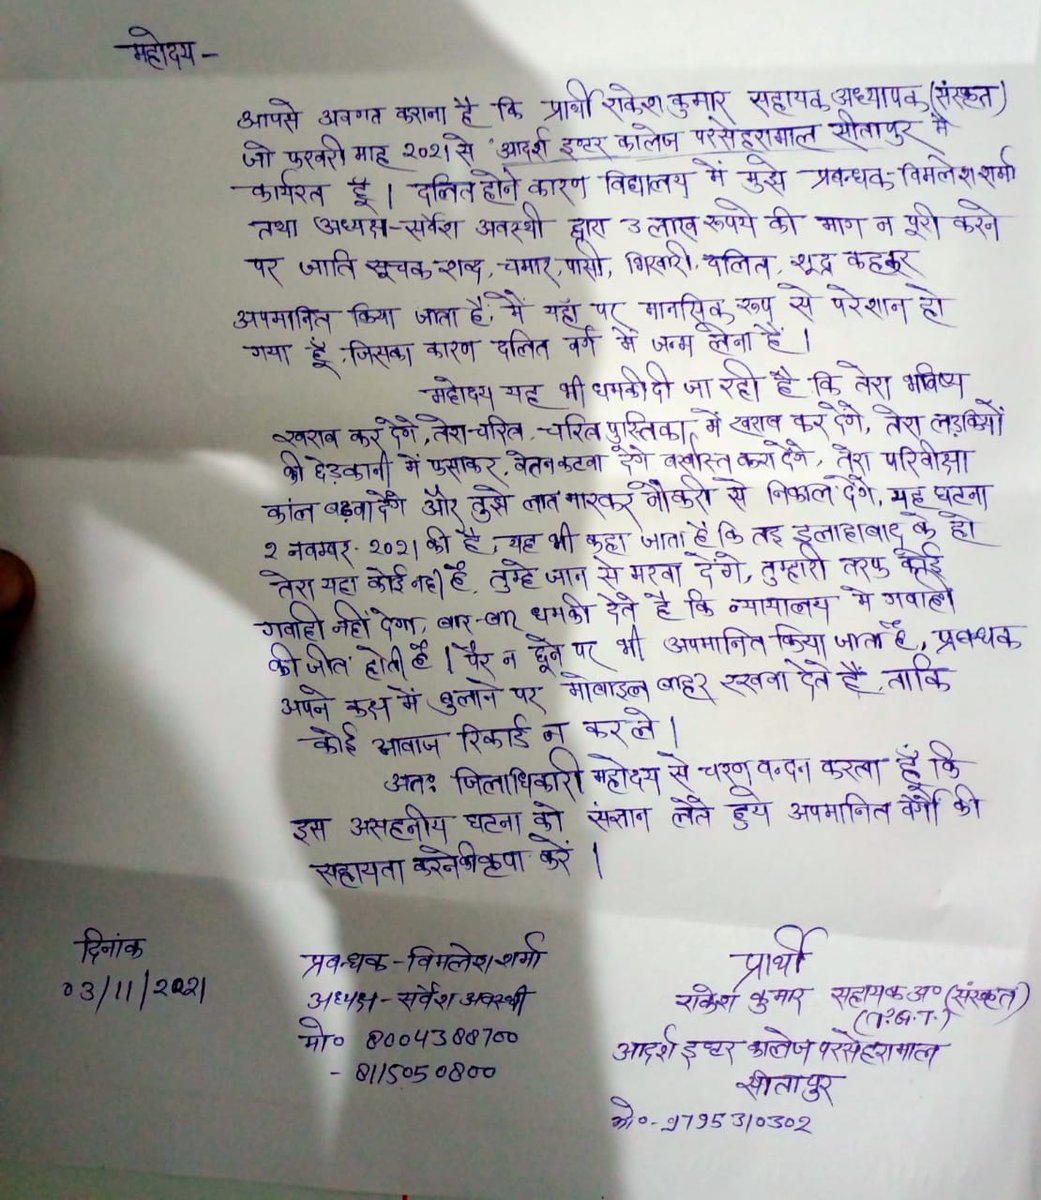 महोदय -
आपसे अवगत कराना है कि प्रार्थी राकेश कुमार सहायक अध्यापक (संस्कृत)
जो फरवरी माह 2021 से आदर्श इण्टर कालेज परसेहरामाल सीतापुर में
कार्यरत हूँ । दलित होने कारण विद्यालय में मुझे प्रबन्धक-विमलेश शर्मा
तथा अध्यक्ष-सर्वेश अवस्थी द्वारा 3 लाख रूपये की माग न पूरी करने
पर जाति सूचक शब्द, चमार, पासी, भिखारी, दलित, शूद्र कहकर
अपमानित किया जाता है, मैं यहाँ पर मानसिक रूप से परेशान हो
गया हूँ, जिसका कारण दलित वर्ग में जन्म लेना है ।
महोदय यह भी धमकी दी जा रही है कि तेरा भविष्य
खराब कर देंगे, तेरा-चरित्र, चरित्र पुस्तिका में खराब कर देंगे, तेरा लड़कियों
की छेड़कानी में फसाकर, वेतन कटवा देंगे वर्खास्त करा देंगे, तेरा परिवीक्षा
काल बढ़वा देंगे और तुझे लात मारकर नौकरी से निकाल देंगे, यह घटना
2 नवम्बर 2021 की है, यह भी कहा जाता है कि तइ इलाहाबाद के हो
तेरा यहा कोई नही है, तुम्हे जान से मरवा देंगे, तुम्हारी तरफ कोई
गवाही नहीं देगा, बार-बार धमकी देते है कि न्यायालय मे गवाही
की जीत होती है । पैर न छूने पर भी अपमानित किया जाता है, प्रबन्धक
अपने कक्ष में बुलाने पर मोबाइल बाहर रखवा देते हैं, ताकि
कोई आवाज रिकार्ड न कर ले ।
अतः जिलाधिकारी महोदय से चरण वन्दन करता हूँ कि
इस असहनीय घटना को संज्ञान लेते हुये अपमानित वर्गो की
सहायता करने की कृपा करें ।
दिनांक
03/11/2021
प्रबन्धक - विमलेश शर्मा
अध्यक्ष - सर्वेश अवस्थी
मो० 8004388700
- 8115050800
प्रार्थी
राकेश कुमार सहायक अ० (संस्कृत)
(T.G.T.)
आदर्श इण्टर कालेज परसेहरामाल
सीतापुर
मो०- 9795310302